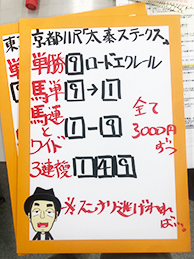 京都11R「太秦ステークス」
単勝 9 ロードエクレール
馬単 9→1
馬連とワイド 1-9
全て3000円ずつ
3連複 1 4 9
※スンナリ逃げられれば…。
東
単